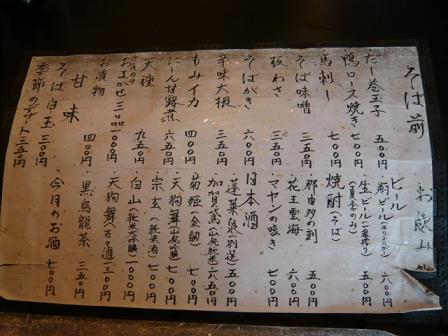 そば前
だし巻玉子 五〇〇円
鴨ロース焼き 七〇〇円
馬刺し 七〇〇円
そば味噌 三五〇円
板わさ 三五〇円
そばがき 六〇〇円
辛味大根 三五〇円
にしん甘露煮 六五〇円
もみイカ 四〇〇円
天種 九五〇円
おまかせ三品 一〇〇〇円
お漬物 四〇〇円
甘味
そば白玉 二五〇円
季節のデザート 三五〇円
ビール
生ビール
焼酎(そば)
那由多の刻 五〇〇円
花王雲海 六〇〇円
マヤンの呟き 七〇〇円
日本酒
蓬莱泉(別選) 五〇〇円
加賀鳶(山廃純米) 六五〇円
菊姫(金劔) 七〇〇円
天狗舞(山廃吟醸) 七〇〇円
宗玄(純米酒) 七〇〇円
白山(純米大吟醸) 一〇〇〇円
天狗舞(古々酒) 一三〇〇円
黒烏龍茶 三五〇円
今月のお酒 七〇〇円